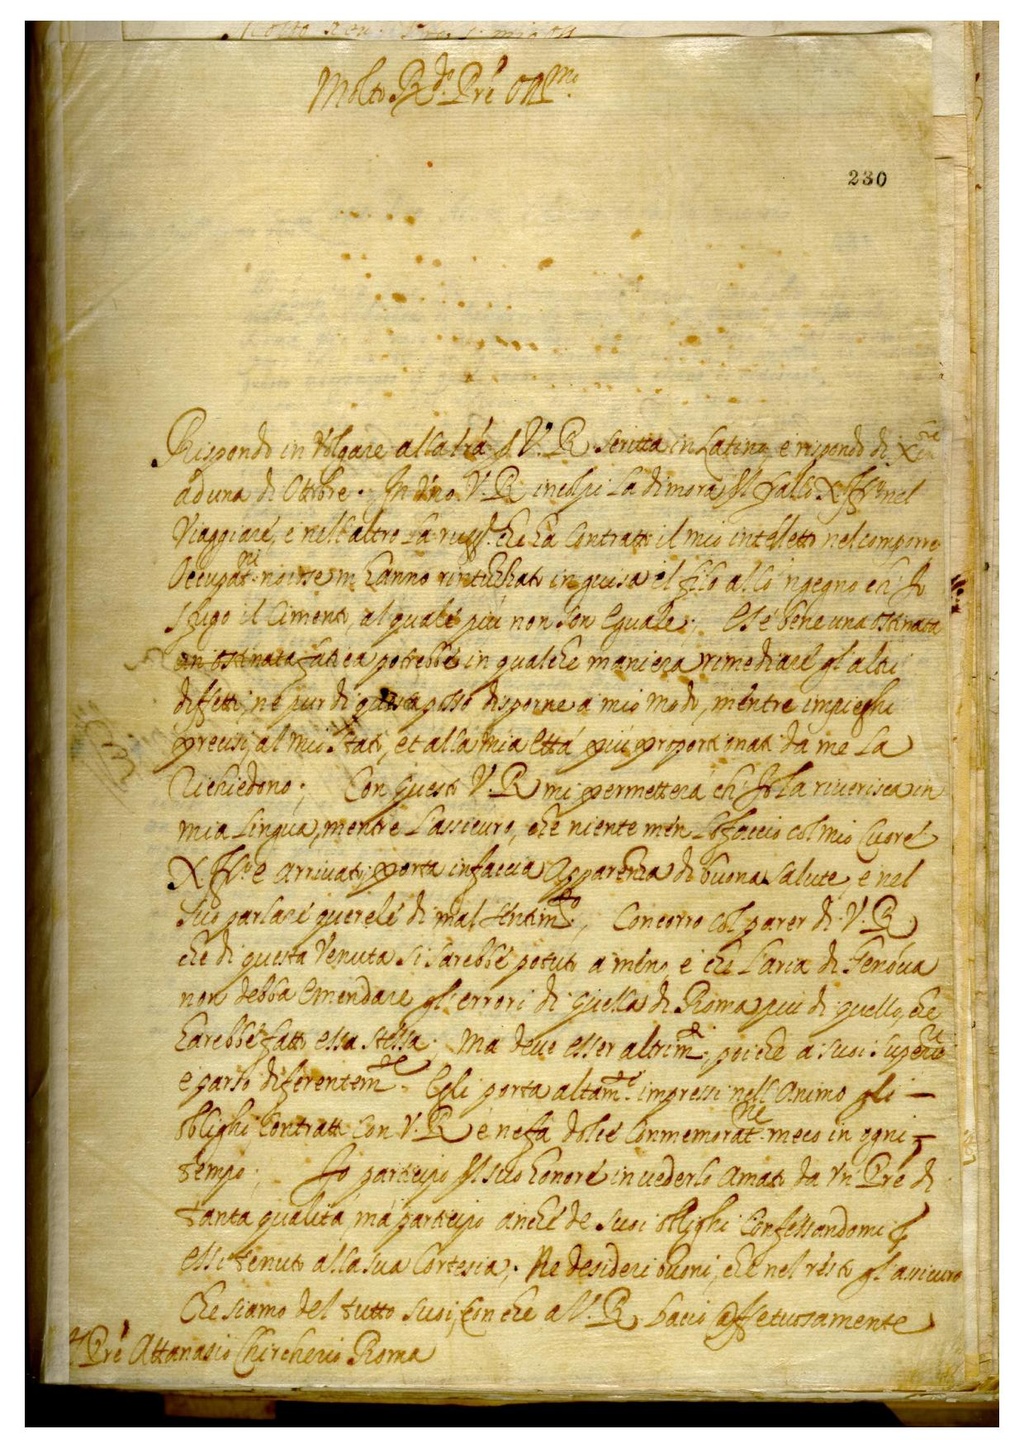 Molto R.do Pre Oss.mo
230
Rispondo in Volgare alla lra di V. R. scritta in Latino, e rispondo di
ad una di Ottobre. In d'no V. R. incolpi la dimora del nel
Viaggiare, e nell'altro la che ha contratto il mio intelletto nel comporre
Occupat.ni noiose m'hanno rintuzzato in guisa il filo all'ingegno ch'Io
sfugo il Cimento, al quale più non son eguale; e se bene una ostinata
fatica potrebbe in qualche maniera rimediare gl'altri
difetti, ne pur di questa posso disporne a mio modo, mentre impieghi
precisi, al mio stato, et alla mia ettà più proportionati da me la
richiedono; Con questo V. R. mi permetterà ch'Io la riverisca in
mia lingua, mentre l'assicuro, che niente men lo faccio col mio Cuore.
è arrivato, porta in faccia apparenza di buona salute, e nel
suo parlare querele di mal sentim.to; Concorro col parer di V. R.
che di questa Venuta si sarebbe potuto a meno, e che l'aria di Genova
non debba emendare gl'errori di quella di Roma più di quello, che
harebbe fatto essa stessa; Ma deve esser altrim.te poiche a suoi
e parso diferentem.te Egli porta altam.te impressi nell'Animo gli
oblighi contratti con V. R. e ne fa dolce Commemorat.ne meco in ogni
tempo; Io participo del suo honore in vederlo amato da un Pre di
tanta qualità, ma participo anche de suoi oblighi Confessandomi p
essi tenuto alla sua Cortesia; Ne desideri buoni, che nel resto gl'assicuro
che siamo del tutto suoi, con che a V. R. bacio affettuosamente
Pre Attanasio Chircherio Roma